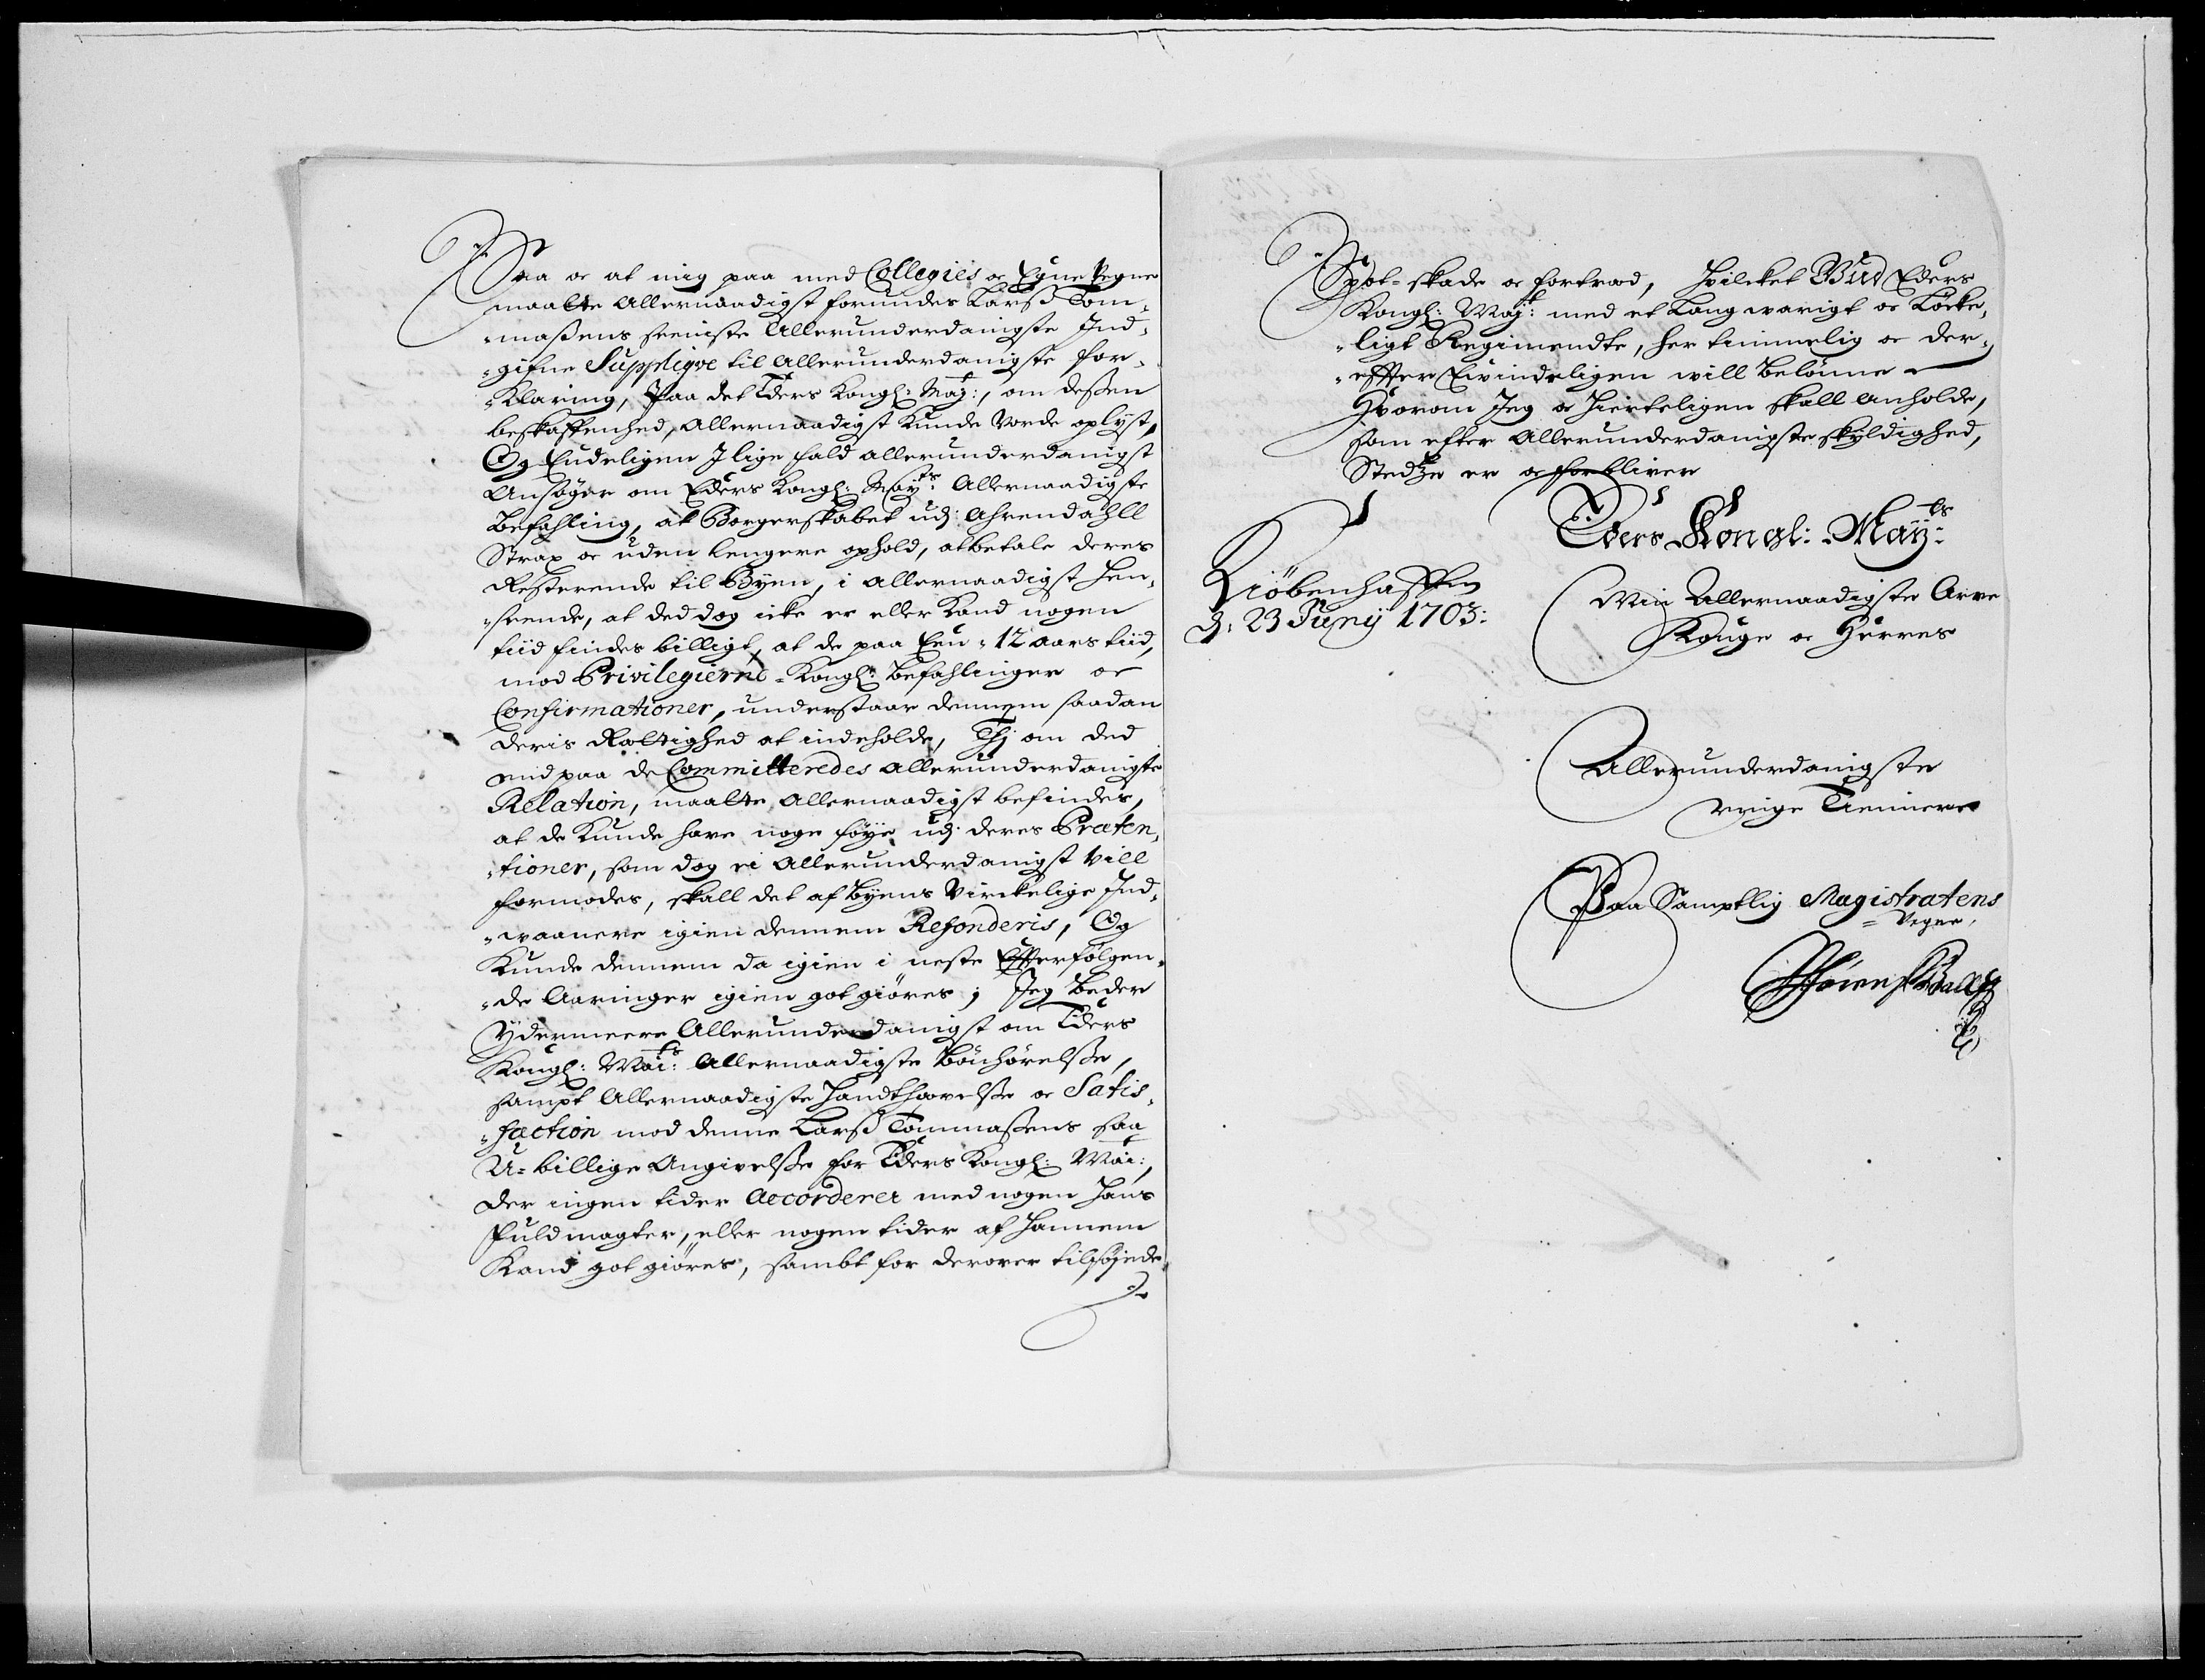 Saa oc at mig paa med Collegies oc Egne Vegne
maatte Allernaadigst forundes Larß Tom¬
„maßens seeniste Allerunderdanigste Ind¬
„gifne Suppliqve til Allerunderdanigste for¬
„Klaring, Paa det Eders Kongl: Maj:t, om deßen
beskaffenhed, Allernaadigst Kunde Vorde oplyst,
Og Endeligen I lige fald allerunderdanigst
Ansøger om Eders Kongl: May:ts Allernaadigste
Befahling, at Borgerskabet udj: Ahrendahll
Strax oc uden lengere ophold, atbetale deres
Resterende til Byen, i Allernaadigst hen¬
„seende, at ded dog icke er eller Kand nogen
tiid findes billigt, at de paa Een „ 12 aars tiid,
mod Privilegierne = Kongl: Befahlinger oc
Confirmationer, understaar dennem saadan
deris Rættighed at indeholde, Thj om ded
end paa de Committeredes allerunderdanigste
Relation, maatte Allernaadigst befindes,
at de Kunde have noge føye udj deres Præten„
„tioner, som dog ei Allerunderdanigst Vill
formodes, skall det af byens Virckelige Ind¬
„vaanere igien dennem Refonderis, Og
Kunde dennem da igien i neste Effterfølgen„
„de Aaringer igien got giøres; Jeg beder
Ydermeere Allerunderdanigst om Eders
Kongl: Mai:ts Allernaadigste bønhørelße,
sampt Allernaadigste handthævelße oc Satis„
„faction mod denne Larß Tommaßens saa
U=billige Angivelße for Eders Kongl: Mai:t,
der ingen tider Accorderer med nogen hans
Fuldmagter, eller nogen tider af hannem
Kand got giøres, sambt for derover tilføjede
Spot= skade oc fortræd, hvilcket Gud Eders
Kongl: Maj:t med et Langvarigt oc Løcke„
„ligt Regimendte, her timmelig oc der„
„effter Evindeligen will belønne
Hvorom Jeg oc hierteligen skall anholde,
som efter Allerunderdanigste skyldighed,
Stedze er oc forbliver
Eders Kongl: May:ts
Kiøbenhaffn
d: 23 Junij 1703:
Min Allernaadigste Arve
Konge oc Herres
Allerunderdanigste
ringe Tienner
Paa Samptlig Magistratens
= Vegne,